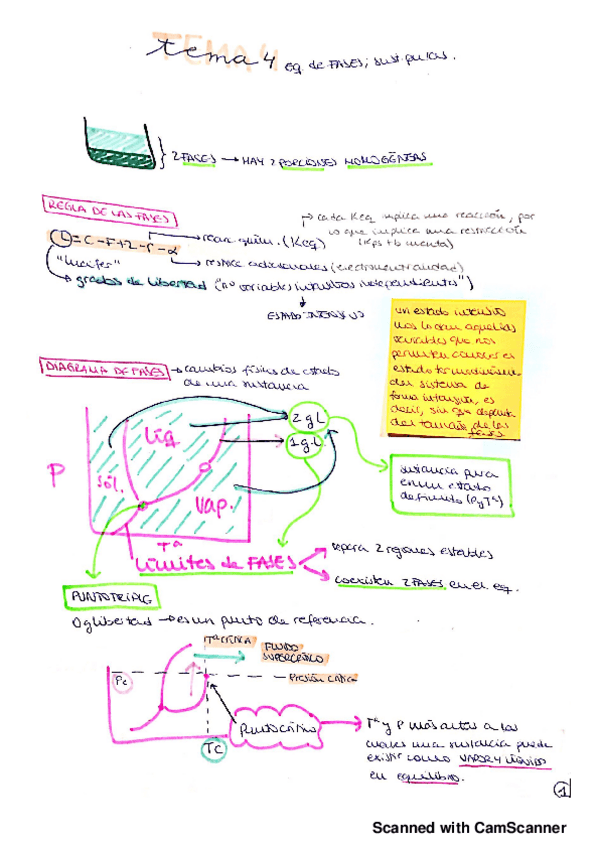 TEMA 4
tema 4 eq. de FASES; sust. puras.
2 FASES → HAY 2 PORCIONES HOMOGÉNEAS
REGLA DE LAS FASES
L = C - F + 2 - r - α
"Lucifer"
→ reacc. quím. (Keq)
→ cada Keq implica una reacción, por
lo que implica una restricción
→ restricc. adicionales (electroneutralidad)
grados de libertad ("nº variables intensivas independientes")
ESTADO INTENSIVO
un estado intensivo
nos lo dan aquellas
variables que nos
permiten conocer el
estado termodinámico
del sistema de
forma intensiva, es
decir, sin que dependa
del tamaño de las
fases
DIAGRAMA DE FASES → cambios físicos de estado
de una sustancia
P
sól.
Líq
Vap.
Tª
2 g.L
1 g.L
sustancia pura
en un estado
definido (P y Tª)
Límites de FASES
separa 2 regiones estables
coexisten 2 FASES en el eq.
PUNTO TRIPLE
0 g libertad → es un punto de referencia.
Tª CRÍTICA
FLUIDO
SUPERCRÍTICO
Pc
Presión crítica
Tc
punto crítico
Tª y P más altas a las
cuales una sustancia puede
existir como VAPOR Y LÍQUIDO
en equilibrio.
1
Scanned with CamScanner